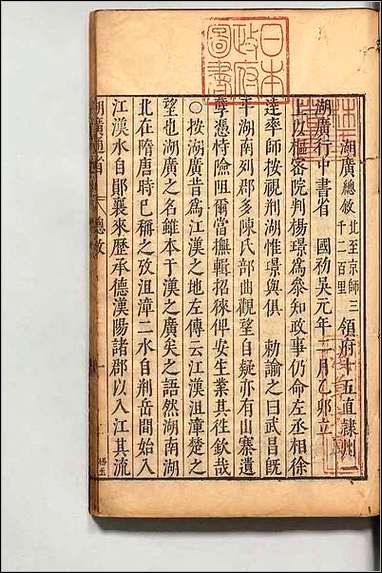 日本
政府
圖書
湖廣總敘 北至京師三千二百里 領府十五直隸州二
湖廣行中書省 國初吳元年二月乙卯立
上以樞密院判楊璟為參知政事仍命左丞相徐
達率師按視荆湖惟璟與俱 勅諭之曰武昌旣
平湖南列郡多陳氏部曲觀望自疑亦有山寨遺
孽憑恃險阻爾當撫輯招徠俾安生業其徃欽哉
○按湖廣昔為江漢之地左傳云江漢沮漳楚之
望也湖廣之名雖本于漢之廣矣之語然湖南湖
北在隋唐時已稱之攷沮漳二水自荆岳間始入
江漢水自鄖襄來歷承德漢陽諸郡以入江其流
湖廣通省 總敘 一